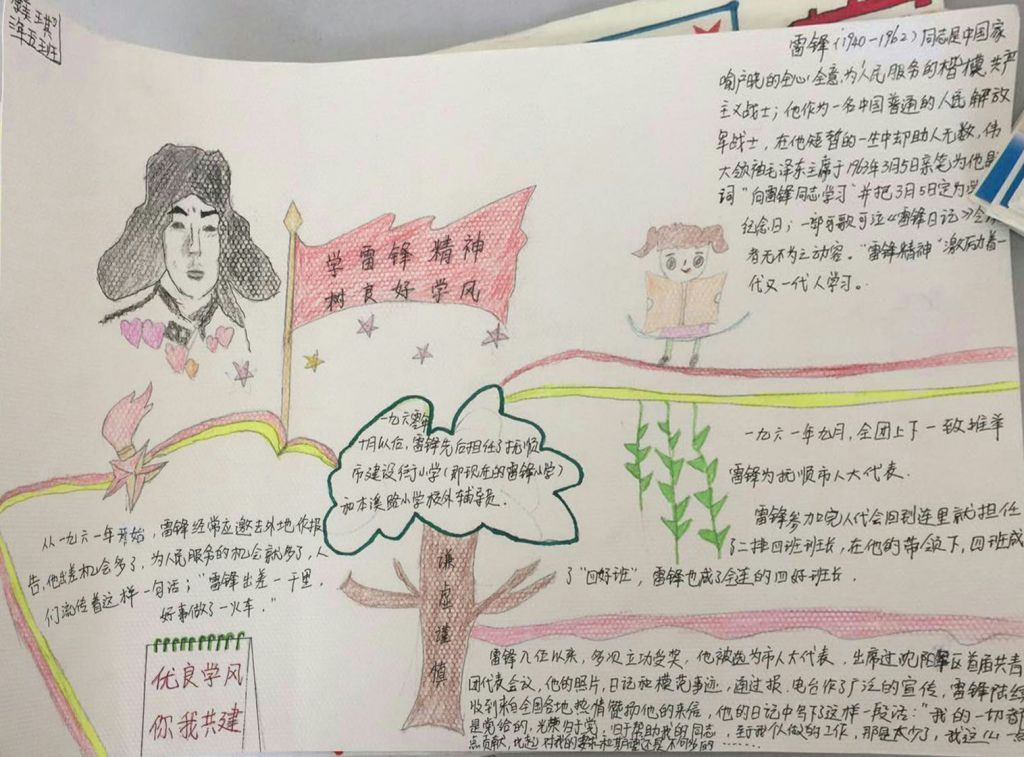 三年五班
雷锋(1940-1962)同志是中国家
喻户晓的全心全意为人民服务的楷模,共产
主义战士;他作为一名中国普通的人民解放
军战士,在他短暂的一生中却助人无数,伟
大领袖毛泽东主席于1963年3月5日亲笔为他题
词"向雷锋同志学习"并把3月5日定为学
纪念日;一部可歌可泣《雷锋日记》令
者无不为之动容。"雷锋精神"激励着一
代又一代人学习。
学雷锋精神
树良好学风
一九六零年
十月以后,雷锋先后担任了抚顺
市建设街小学(即现在的雷锋小学)
和本溪路小学校外辅导员.
一九六一年九月,全团上下一致推举
雷锋为抚顺市人大代表.
雷锋参加完人代会回到连里就担任
了二排四班班长,在他的带领下,四班成
了"四好班",雷锋也成了全连的四好班长.
从一九六一年开始,雷锋经常应邀去外地作报
告,他出差机会多了,为人民服务的机会就多了,人
们流传着这样一句话;"雷锋出差一千里,
好事做了一火车."
谦虚谨慎
优良学风
你我共建
雷锋入伍以来,多次立功受奖,他被选为市人大代表,出席过沈阳军区首届共青
团代表会议,他的照片,日记和模范事迹,通过报.电台作了广泛的宣传,雷锋陆续
收到来自全国各地热情赞扬他的来信,他的日记中写下了这样一段话:"我的一切都
是党给的,光荣归于党,归于帮助我的同志,至于我个人做的工作,那是太少了,我这么一点
点贡献,比起党对我的要求和期望还是不够的……